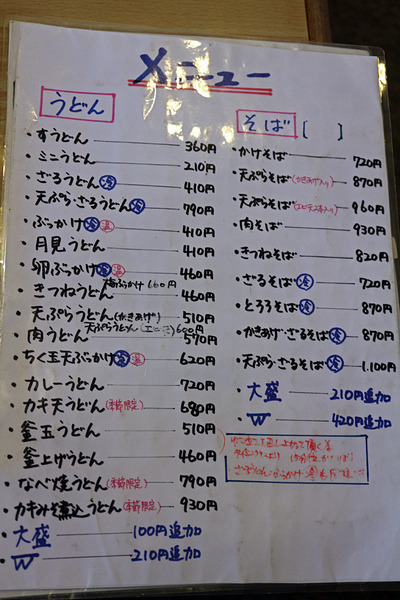 メニュー
うどん
・すうどん 360円
・ミニうどん 210円
・ざるうどん 冷 410円
・天ぷら・ざるうどん 冷 790円
・ぶっかけ 冷 温 410円
・月見うどん 410円
・卵ぶっかけ 冷 温 460円
梅ぶっかけ 660円
・きつねうどん 460円
・天ぷらうどん(かきあげ) 510円
天ぷらうどん(エビ二本) 600円
・肉うどん 570円
・ちく玉天ぶっかけ 冷 温 620円
・カレーうどん 720円
・カキ天うどん(季節限定) 680円
・釜玉うどん 510円
・釜上げうどん 460円
・なべ焼うどん(季節限定) 790円
・カキみそ煮込うどん(季節限定) 930円
・大盛 100円追加
・W 210円追加
そば [ ]
・かけそば 720円
・天ぷらそば(かきあげ入り) 870円
・天ぷらそば(エビ天2本入り) 960円
・肉そば 930円
・きつねそば 820円
・ざるそば 冷 720円
・とろろそば 冷 870円
・かきあげ・ざるそば 冷 870円
・天ぷら・ざるそば 冷 1,100円
・大盛 210円追加
・W 420円追加